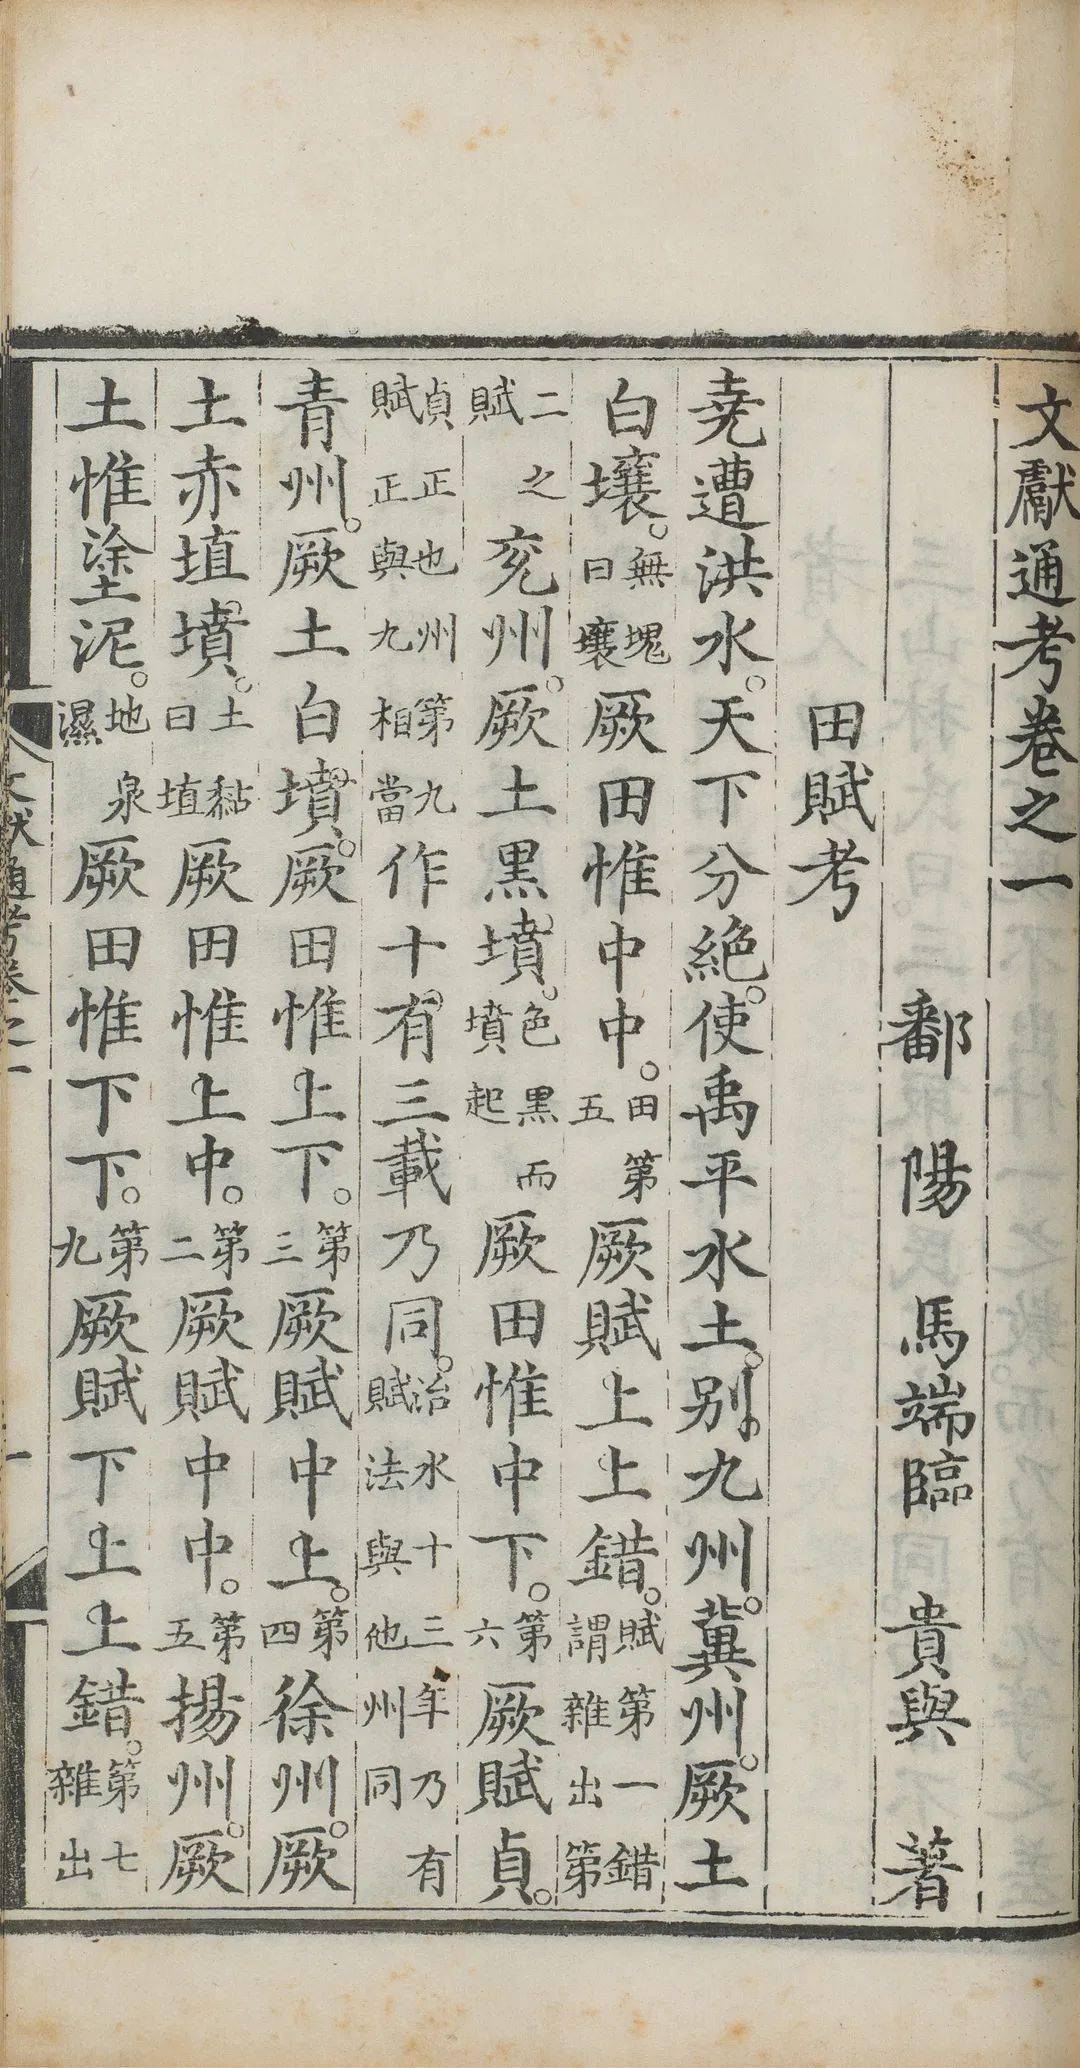 文獻通考卷之一
鄱陽馬端臨貴與著
田賦考
堯遭洪水。天下分絶。使禹平水土。别九州。冀州。厥土
白壤。無塊曰壤厥田惟中中。田第五厥賦上上錯。賦第一錯謂雜出第
二之賦兖州。厥土黑墳。色黑而墳起厥田惟中下。第六厥賦貞。
貞正也州第九賦正與九相當作十有三載乃同。治水十三年乃有賦法與他州同
青州。厥土白墳。厥田惟上下。第三厥賦中上。第四徐州。厥
土赤埴墳。土黏曰埴厥田惟上中。第二厥賦中中。第五揚州。厥
土惟塗泥。地泉濕厥田惟下下。第九厥賦下上上錯。第七雜出
文獻通考卷之一 一